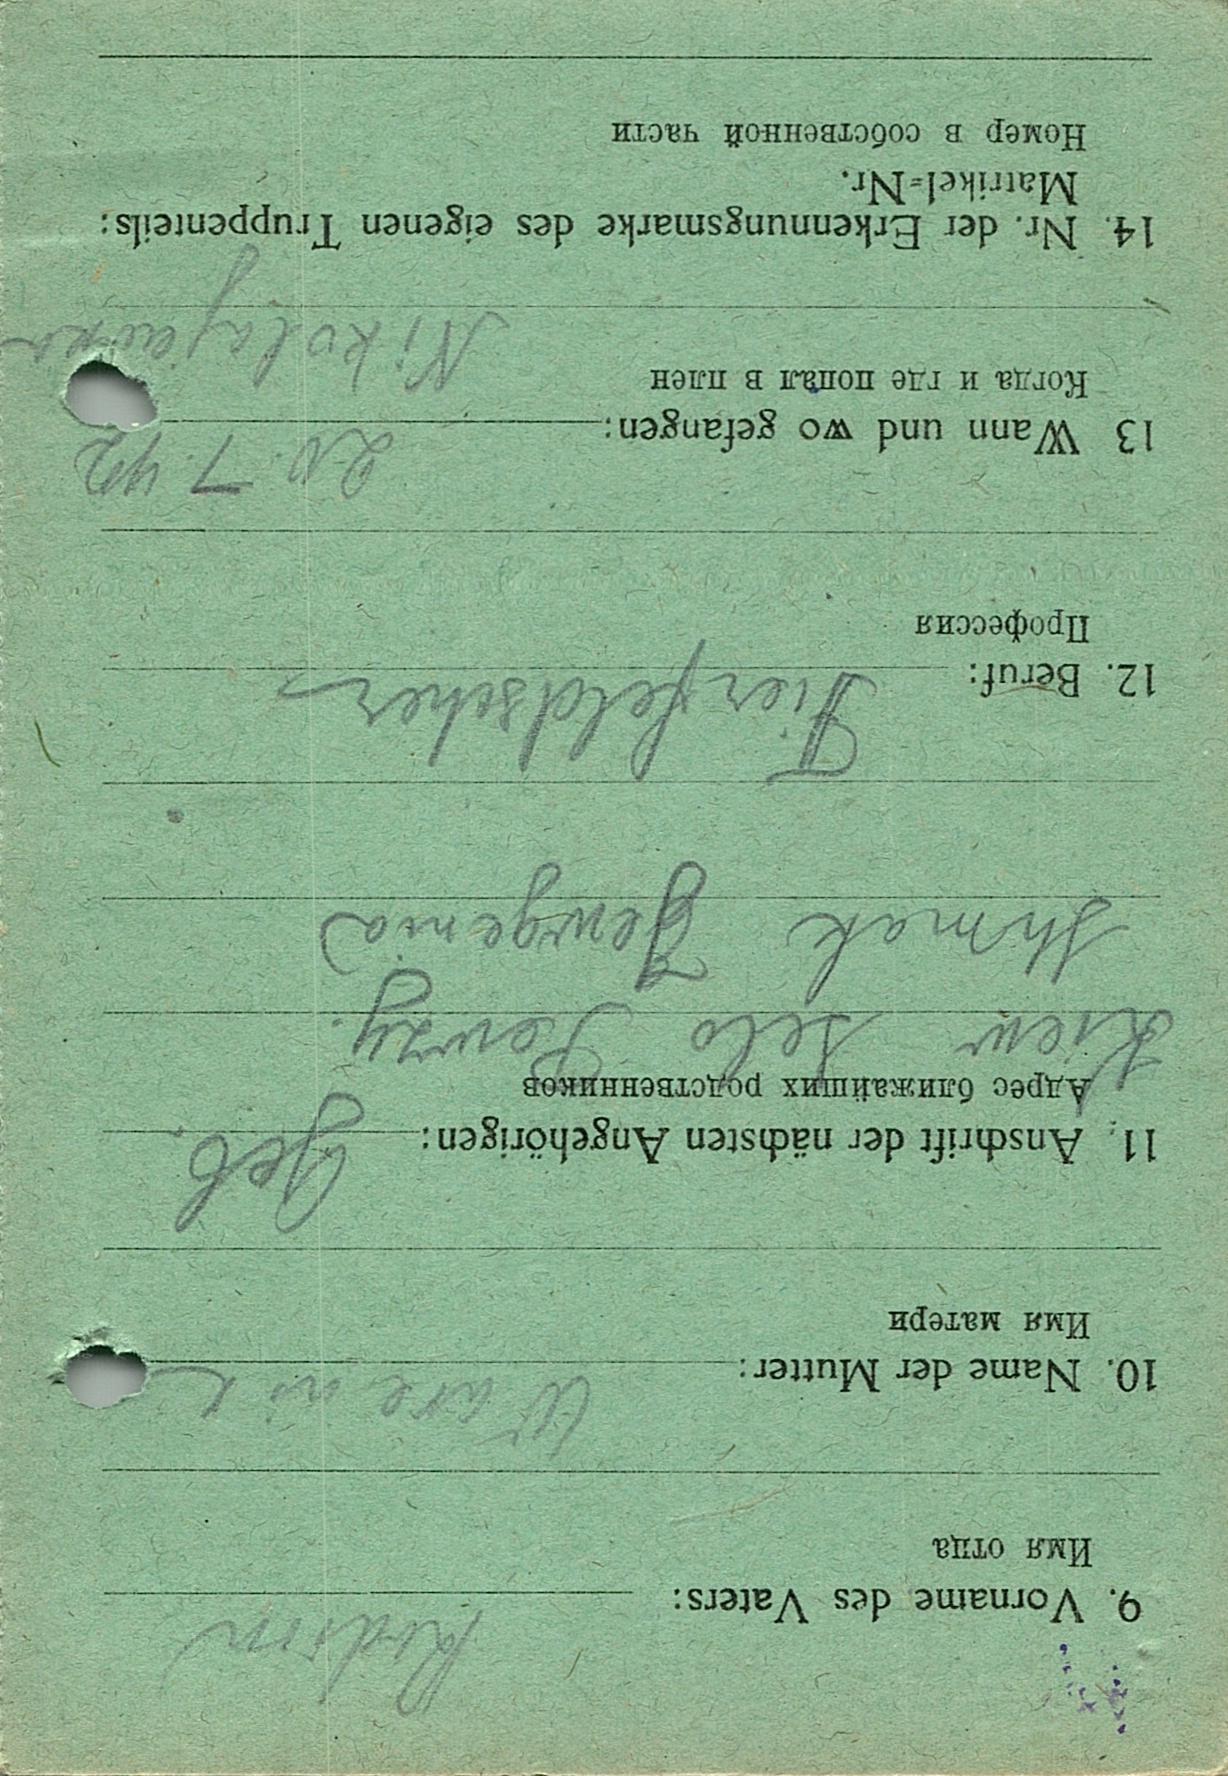 9. Vorname des Vaters: Rodion
Имя отца
10. Name der Mutter: Warenik
Имя матери
11. Anschrift der nächsten Angehörigen: Geb.
Адрес ближайших родственников
Kiew selo Pewzy.
Jewgenia
12. Beruf: Tierfeldscher
Профессия
13 Wann und wo gefangen: 20. 7. 42
Когда и где попал в плен
Nikolajewka
14. Nr. der Erkennungsmarke des eigenen Truppenteils:
Matrikel=Nr.
Номер в собственной части